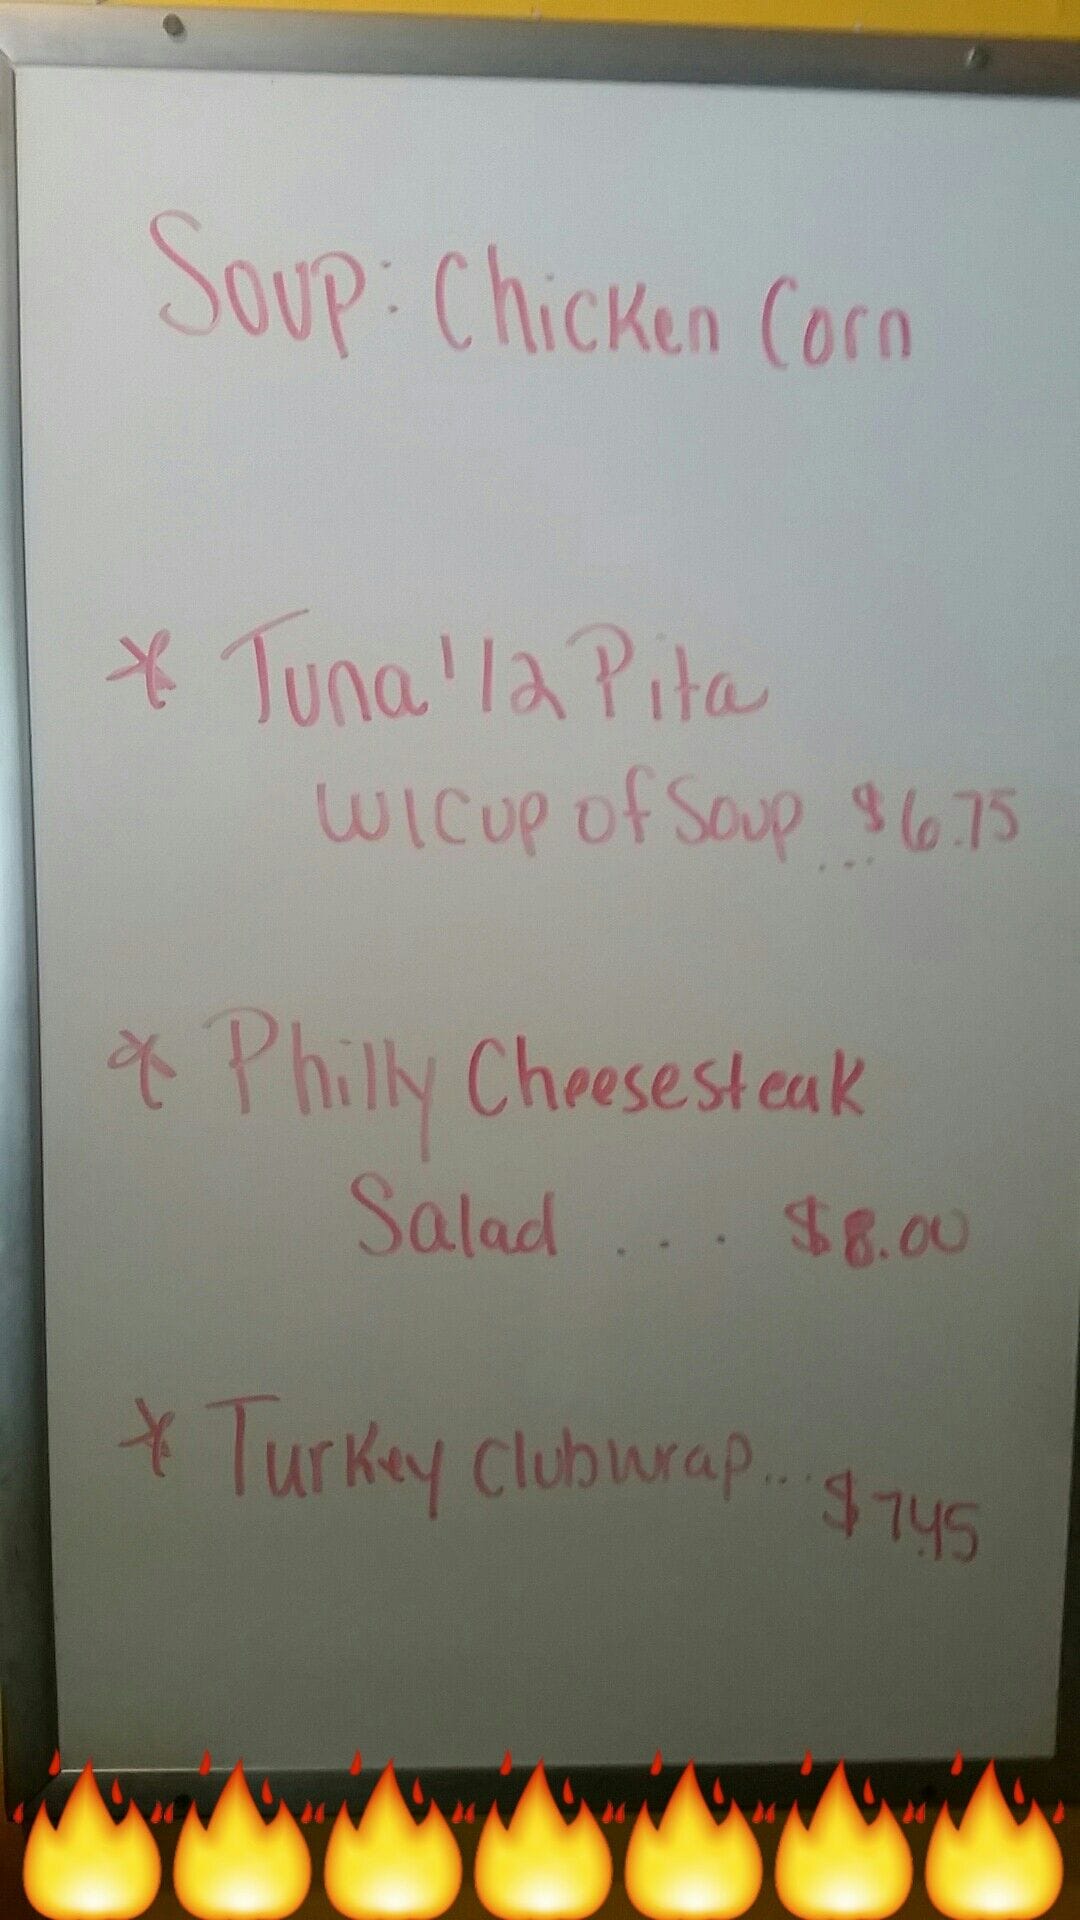 Soup: Chicken Corn
* Tuna 1/2 Pita
w/Cup of Soup ... $6.75
* Philly Cheesesteak
Salad .... $8.00
* Turkey Club wrap... $7.45